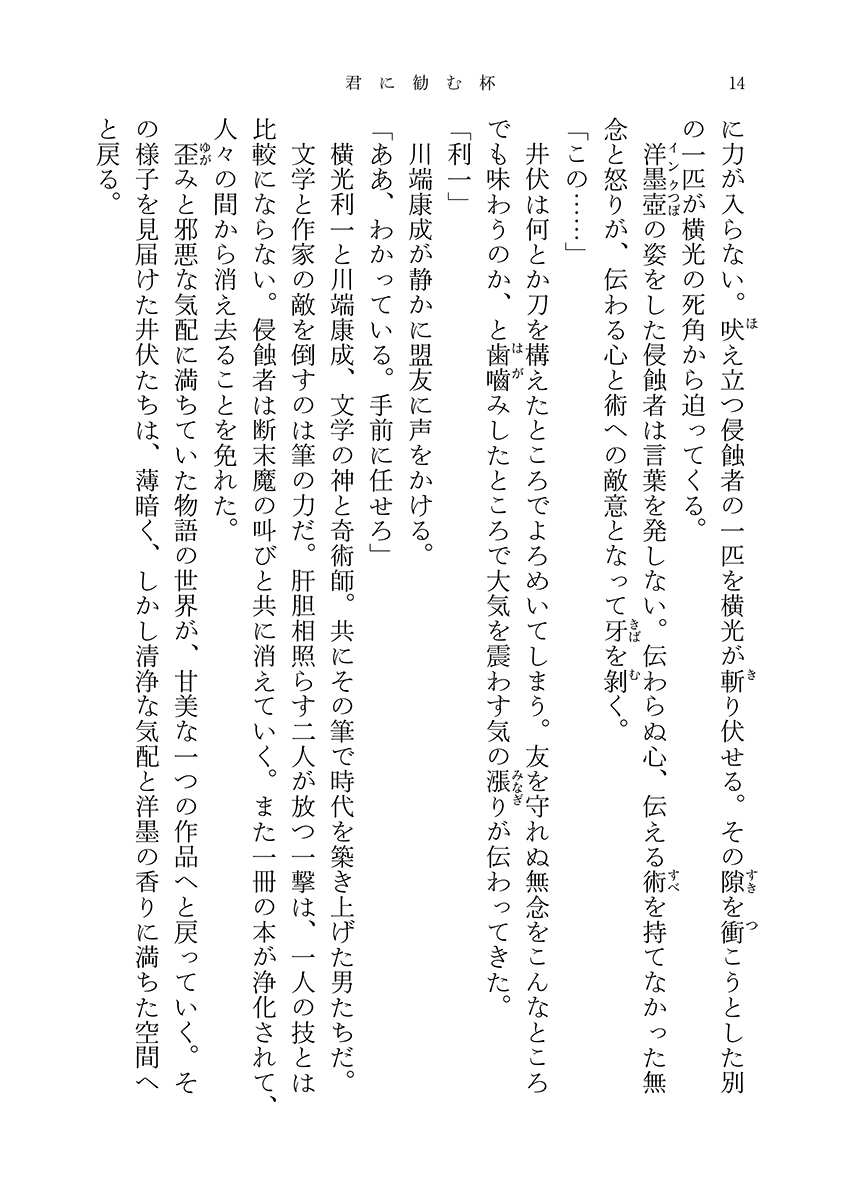 君に勧む杯
14
に力が入らない。吠え立つ侵蝕者の一匹を横光が斬り伏せる。その隙を衝こうとした別
の一匹が横光の死角から迫ってくる。
洋墨壺の姿をした侵蝕者は言葉を発しない。伝わらぬ心、伝える術を持てなかった無
念と怒りが、伝わる心と術への敵意となって牙を剝く。
「この……」
井伏は何とか刀を構えたところでよろめいてしまう。友を守れぬ無念をこんなところ
でも味わうのか、と歯嚙みしたところで大気を震わす気の漲りが伝わってきた。
「利一」
川端康成が静かに盟友に声をかける。
「ああ、わかっている。手前に任せろ」
横光利一と川端康成、文学の神と奇術師。共にその筆で時代を築き上げた男たちだ。
文学と作家の敵を倒すのは筆の力だ。肝胆相照らす二人が放つ一撃は、一人の技とは
比較にならない。侵蝕者は断末魔の叫びと共に消えていく。また一冊の本が浄化されて、
人々の間から消え去ることを免れた。
歪みと邪悪な気配に満ちていた物語の世界が、甘美な一つの作品へと戻っていく。そ
の様子を見届けた井伏たちは、薄暗く、しかし清浄な気配と洋墨の香りに満ちた空間へ
と戻る。